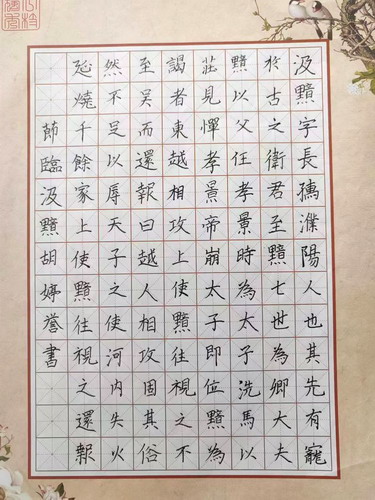 汲黯字長孺濮陽人也其先有寵
於古之衛君至黯七世為卿大夫
黯以父任孝景時為太子洗馬以
莊見憚孝景帝崩太子即位黯為
謁者東越相攻上使黯往視之不
至吳而還報曰越人相攻固其俗
然不足以辱天子之使河內失火
延燒千餘家上使黯往視之還報
節臨汲黯胡婷誉書